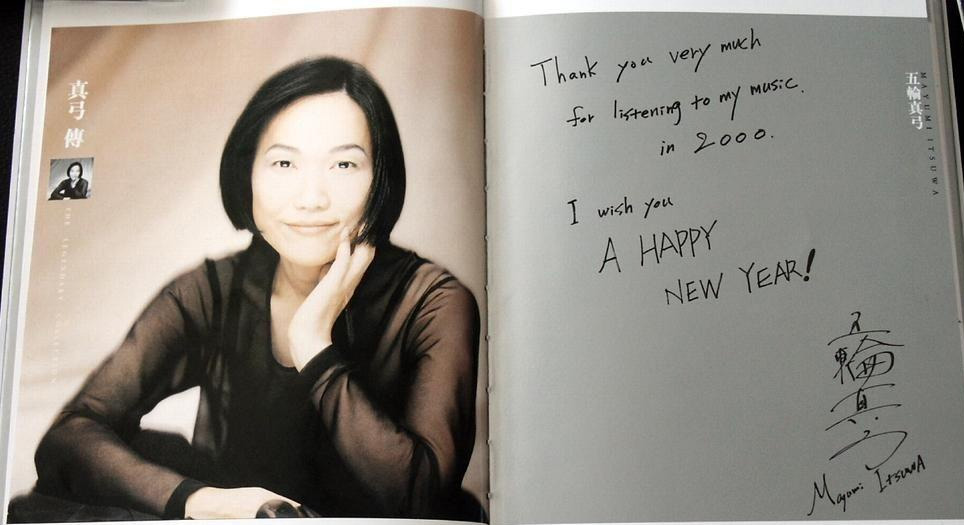 真弓 傳
THE LEGENDARY COLLECTION
Thank you very much
for listening to my music.
in 2000.
I wish you
A HAPPY
NEW YEAR!
五輪真弓
Mayumi ItsuwA
五輪真弓
MAYUMI ITSUWA